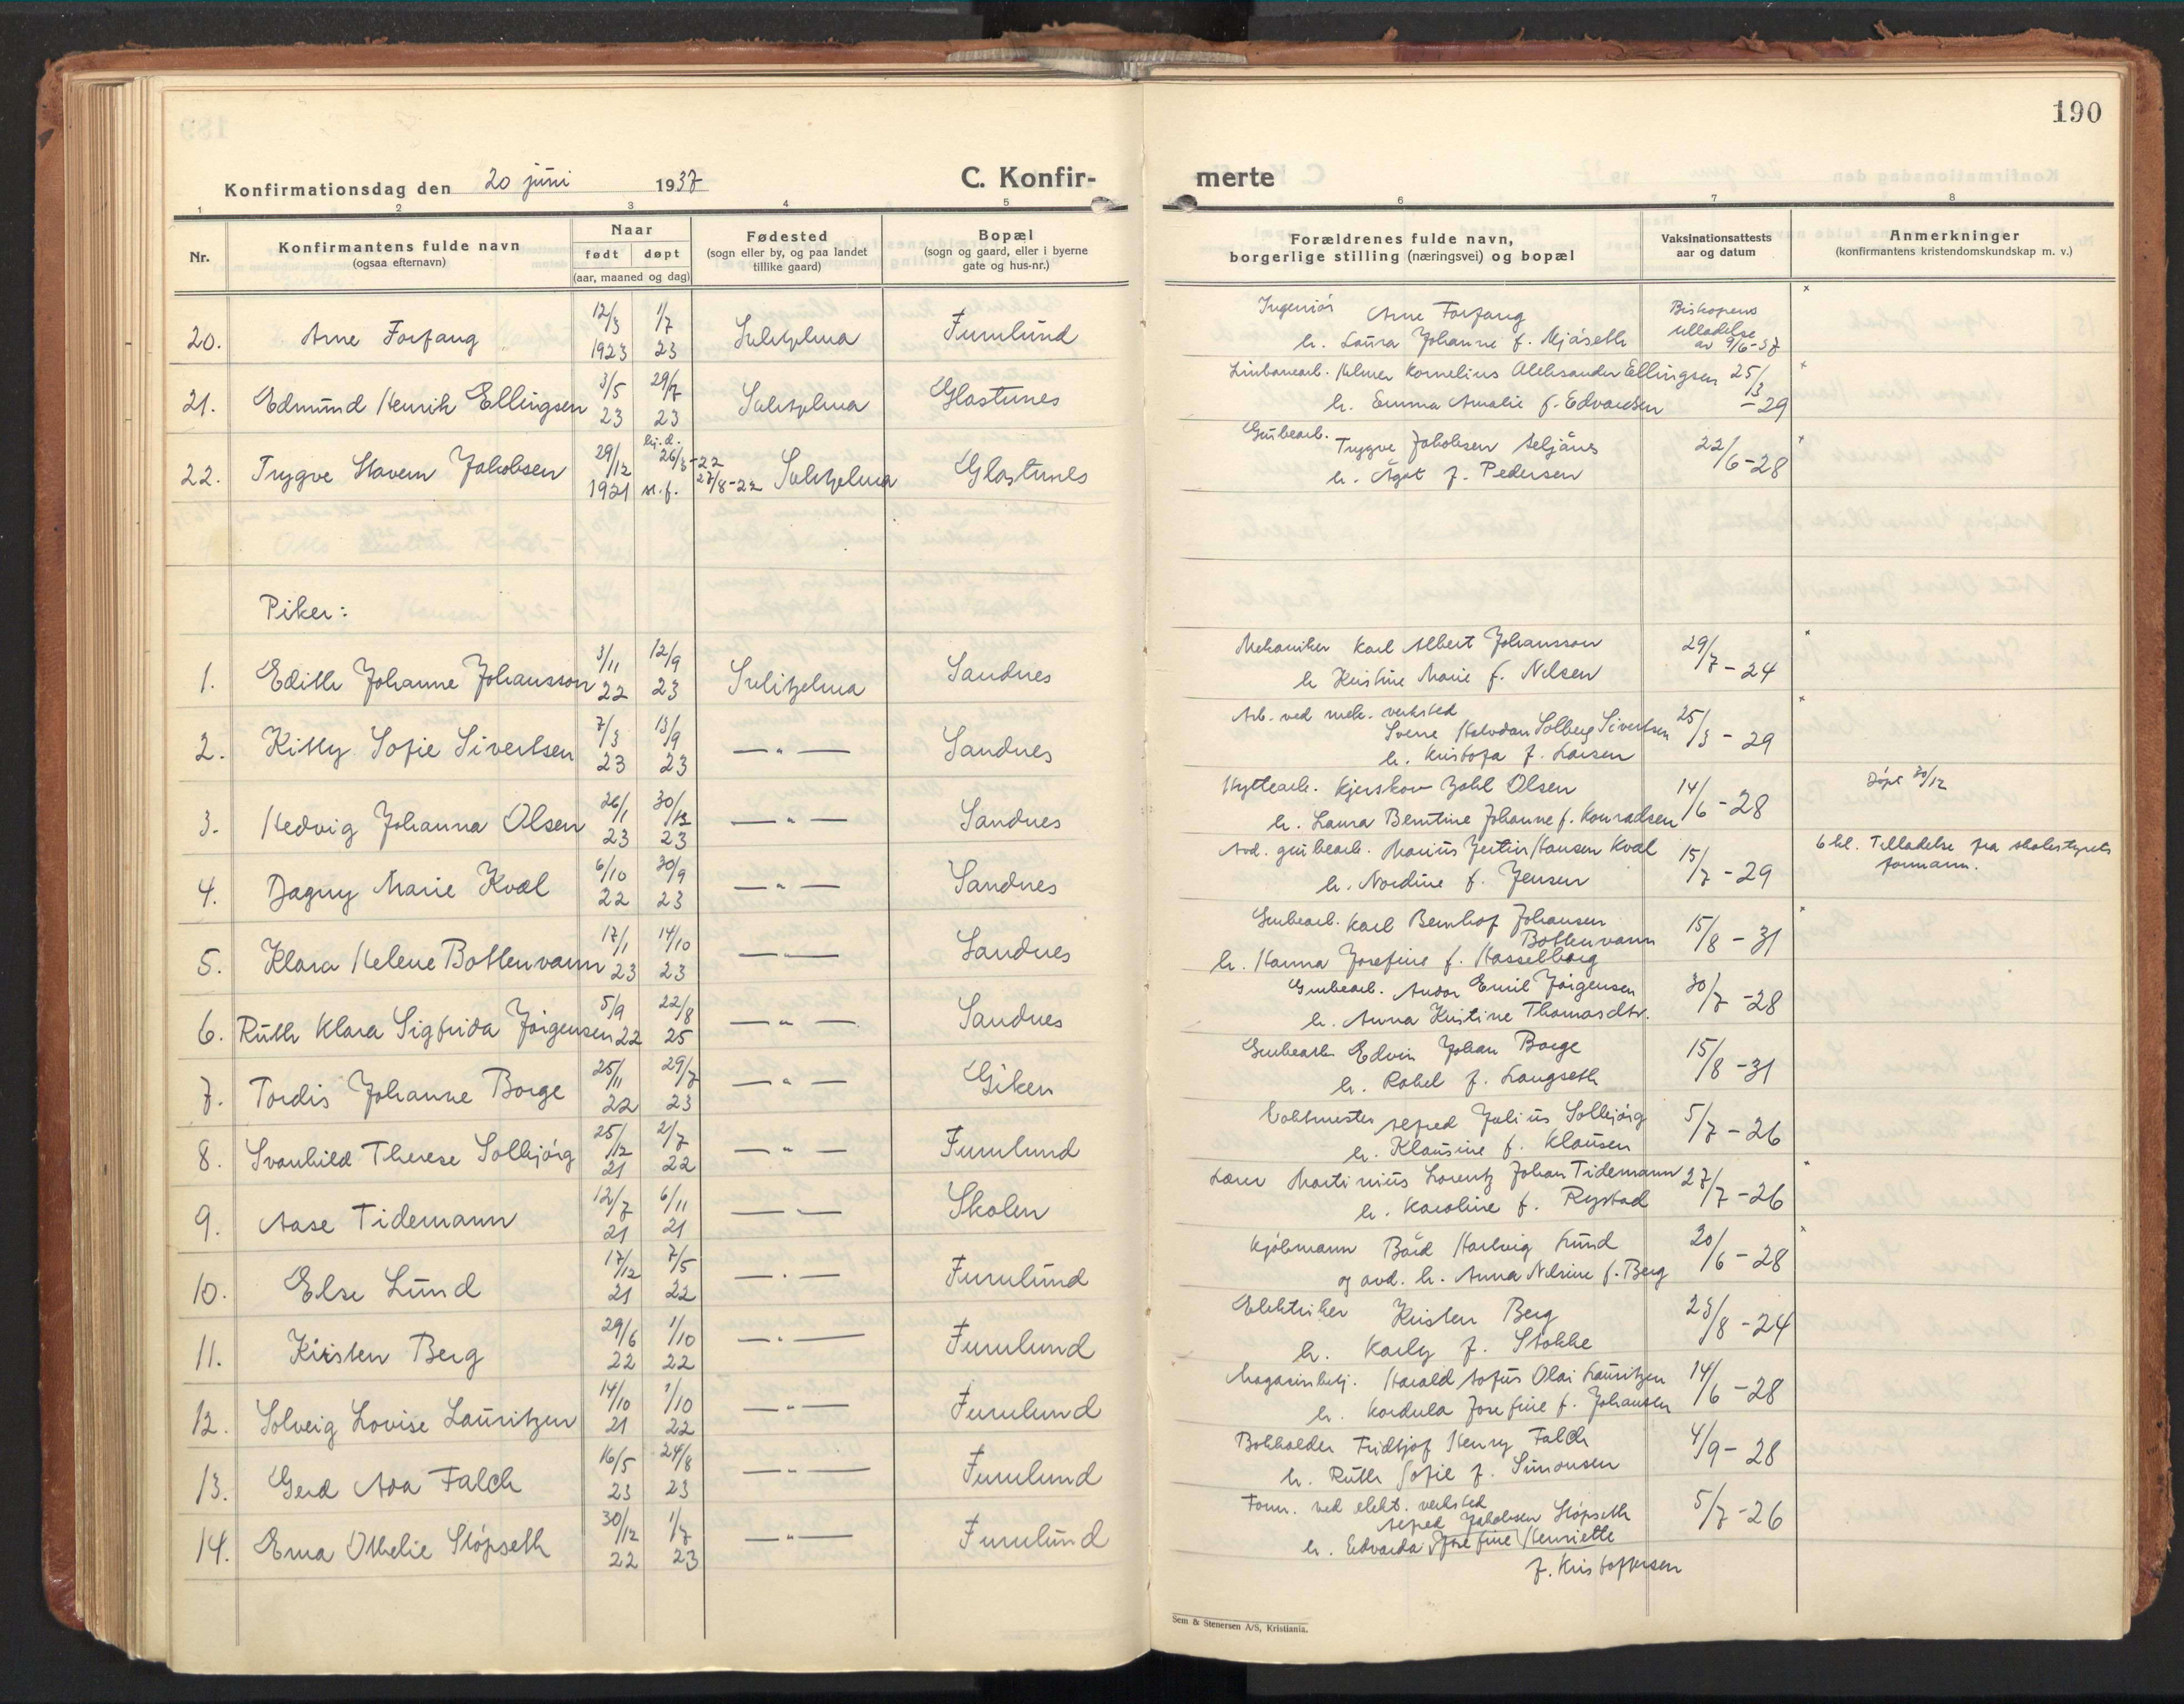 190
Konfirmationsdag den 20 juni 1937
C. Konfir-
merte
1 2 3 4 5 6 7 8
Nr.
Konfirmantens fulde navn
(ogsaa efternavn)
Naar
født døpt
(aar, maaned og dag)
Fødested
(sogn eller by, og paa landet
tillike gaard)
Bopæl
(sogn og gaard, eller i byerne
gate og hus-nr.)
Forældrenes fulde navn,
borgerlige stilling (næringsvei) og bopæl
Vaksinationsattests
aar og datum
Anmerkninger
(konfirmantens kristendomskundskap m. v.)
20. Arne Forfang 12/3 1923 1/7 23 Sulitjelma Furulund
Ingeniør Arne Forfang
h. Laura Johanne f. Mjåseth
Biskopens
tilladelse
av 9/6-37
21. Edmund Henrik Ellingsen 3/5 23 29/7 23 Sulitjelma Glastunes
Linbanearb. Helmer Kornelius Aleksander Ellingsen 25/3 -29
h. Emma Amalie f. Edvardsen
22. Trygve Stavem Jakobsen 29/12 1921 hj. d. 26/3-22 st. f. 27/8-22 Sulitjelma Glastunes
Grubearb. Trygve Jakobsen Seljånes 22/6-28
h. Ågot f. Pedersen
Piker:
1. Edith Johanne Johansson 3/11 22 12/9 23 Sulitjelma Sandnes
Mekaniker Karl Albert Johansson 29/7-24
h Kristine Marie f. Nilsen
2. Kitty Sofie Sivertsen 7/3 23 13/9 23 —"— Sandnes
Arb. ved mek. verksted
Sverre Halvdan Solberg Sivertsen 25/3-29
h. Kristofa f. Larsen
3. Hedvig Johanna Olsen 26/1 23 30/12 23 —"— Sandnes
Hyttearb. Kjerskow Zahl Olsen 14/6-28 Døpt 30/12
h. Laura Berntine Johanne f. Konradsen
4. Dagny Marie Kvæl 6/10 22 30/9 23 —"— Sandnes
Avd. grubearb. Marius Justin Hansen Kvæl 15/7-29
h. Nordine f. Jensen
6 kl. Tilladelse fra skolestyrets
formann.
5. Klara Helene Bottenvann 17/1 23 14/10 23 —"— Sandnes
Grubearb. Karl Bernhof Johansen
Bottenvann 15/8-31
h. Hanna Josefine f. Hasselborg
6. Ruth Klara Sigfrida Jørgensen 5/9 22 22/8 25 —"— Sandnes
Grubearb. Andor Emil Jørgensen 30/7-28
h. Anna Kristine Thomasdtr.
7. Tordis Johanne Borge 25/11 22 29/7 23 —"— Giken
Grubearb Edvin Johan Borge 15/8-31
h. Rakel f. Langseth
8. Svanhild Therese Solbjørg 25/12 21 2/7 22 —"— Furulund
Vaktmester Alfred Julius Solbjørg 5/7-26
h. Klausine f. Klausen
9. Aase Tidemann 12/7 21 6/11 21 —"— Skolen
Lærer Martinius Lorentz Johan Tidemann 27/7-26
h. Karoline f. Rystad
10. Else Lund 17/12 21 7/5 22 —"— Furulund
Kjøbmann Bård Hartvig Lund 20/6-28
og avd. h. Anna Nilsine f. Berg
11. Kirsten Berg 29/6 22 1/10 22 —"— Furulund
Elektriker Kristen Berg 23/8-24
h. Karly f. Stokke
12. Solveig Lovise Lauritzen 14/10 21 1/10 22 —"— Furulund
Magasinbetj. Harald Sofus Olai Lauritzen 14/6-28
h. Kordula Josefine f. Johansen
13. Gerd Ada Falch 16/5 23 24/8 23 —"— Furulund
Bokholder Fridtjof Henry Falch 4/9-28
h. Ruth Sofie f. Simonsen
14. Erna Othelie Støpseth 30/12 22 1/7 23 —"— Furulund
Form. ved elekt. verksted
Alfred Jakobsen Støpseth 5/7-26
h. Edvarda Josefine Henriette
f. Kristoffersen
Sem & Stenersen A/S, Kristiania.